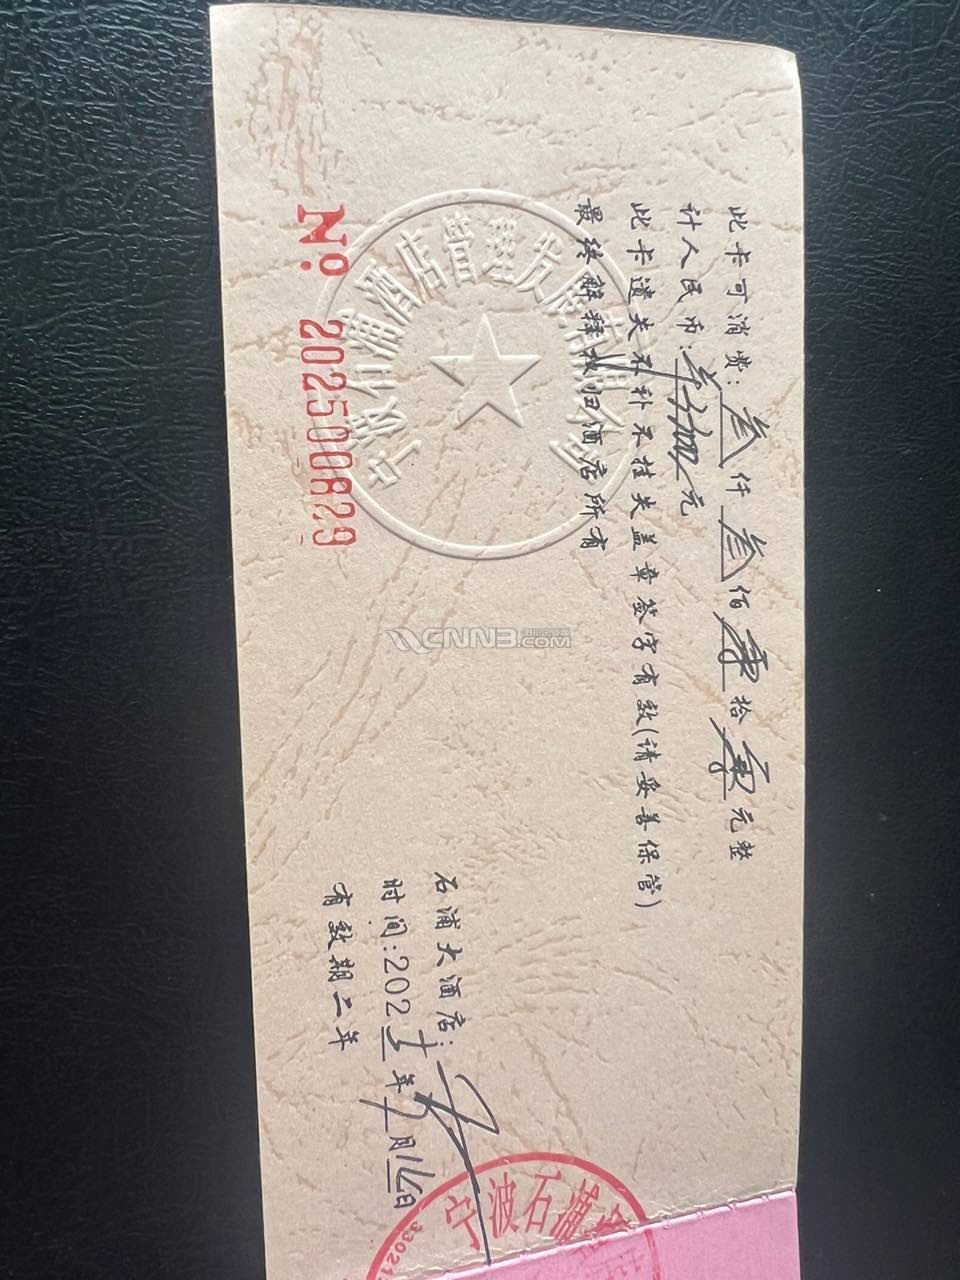 此卡可消费:叁仟叁佰零拾零元整
计人民币:¥3300元
此卡遗失不补不挂失盖章签字有效(请妥善保管)
最终解释权归酒店所有
宁波石浦酒店管理发展
石浦大酒店:
时间:2025年 月16日
有效期二年
Nº 202500829
宁波石浦
33021
CNN3.COM